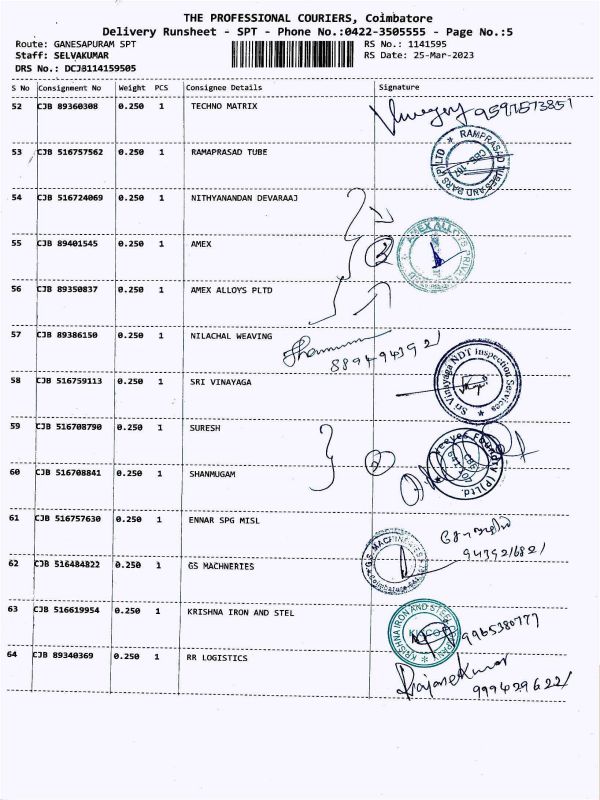 THE PROFESSIONAL COURIERS, Coimbatore
Delivery Runsheet - SPT - Phone No.:0422-3505555 - Page No.:5
Route: GANESAPURAM SPT
RS No.: 1141595
Staff: SELVAKUMAR
RS Date: 25-Mar-2023
DRS No.: DCJB114159505
S No Consignment No Weight PCS Consignee Details Signature
52 CJB 89360308 0.250 1 TECHNO MATRIX
53 CJB 516757562 0.250 1 RAMAPRASAD TUBE
RAMPRASAD TUBES AND BARS (P) LTD
54 CJB 516724069 0.250 1 NITHYANANDAN DEVARAAJ
55 CJB 89401545 0.250 1 AMEX
AMEX ALLOYS PRIVATE
56 CJB 89350837 0.250 1 AMEX ALLOYS PLTD
57 CJB 89386150 0.250 1 NILACHAL WEAVING
58 CJB 516759113 0.250 1 SRI VINAYAGA
Sri Vinayaga NDT Inspection Services
59 CJB 516708790 0.250 1 SURESH
60 CJB 516708841 0.250 1 SHANMUGAM
Foundry (P) Ltd.
61 CJB 516757630 0.250 1 ENNAR SPG MISL
62 CJB 516484822 0.250 1 GS MACHNERIES
G.S. MACHINERIES
63 CJB 516619954 0.250 1 KRISHNA IRON AND STEL
KRISHNA IRON AND STEEL COMPANY
9965380777
64 CJB 89340369 0.250 1 RR LOGISTICS
Rajasekumar
9994296221